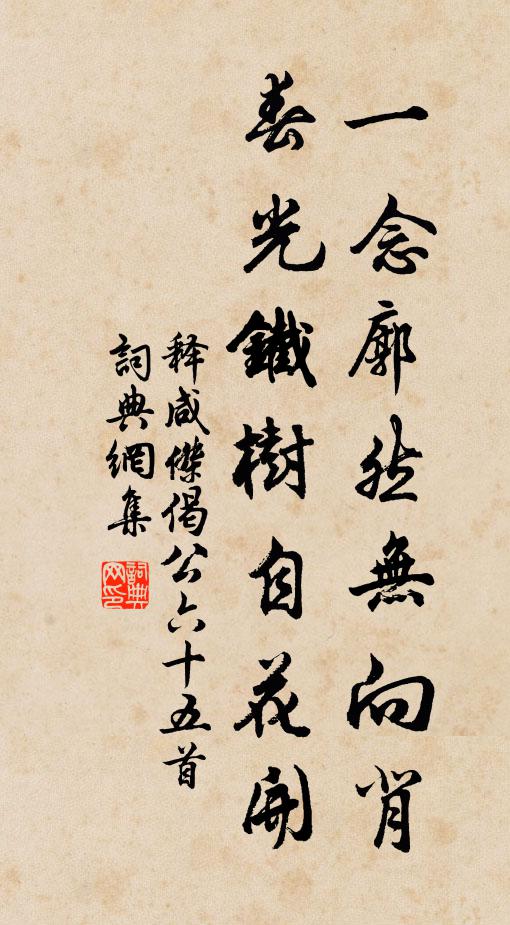 一念廓然無向背
春光鐵樹自花開
释咸傑偈公六十五首
詞典網集
詞典网印